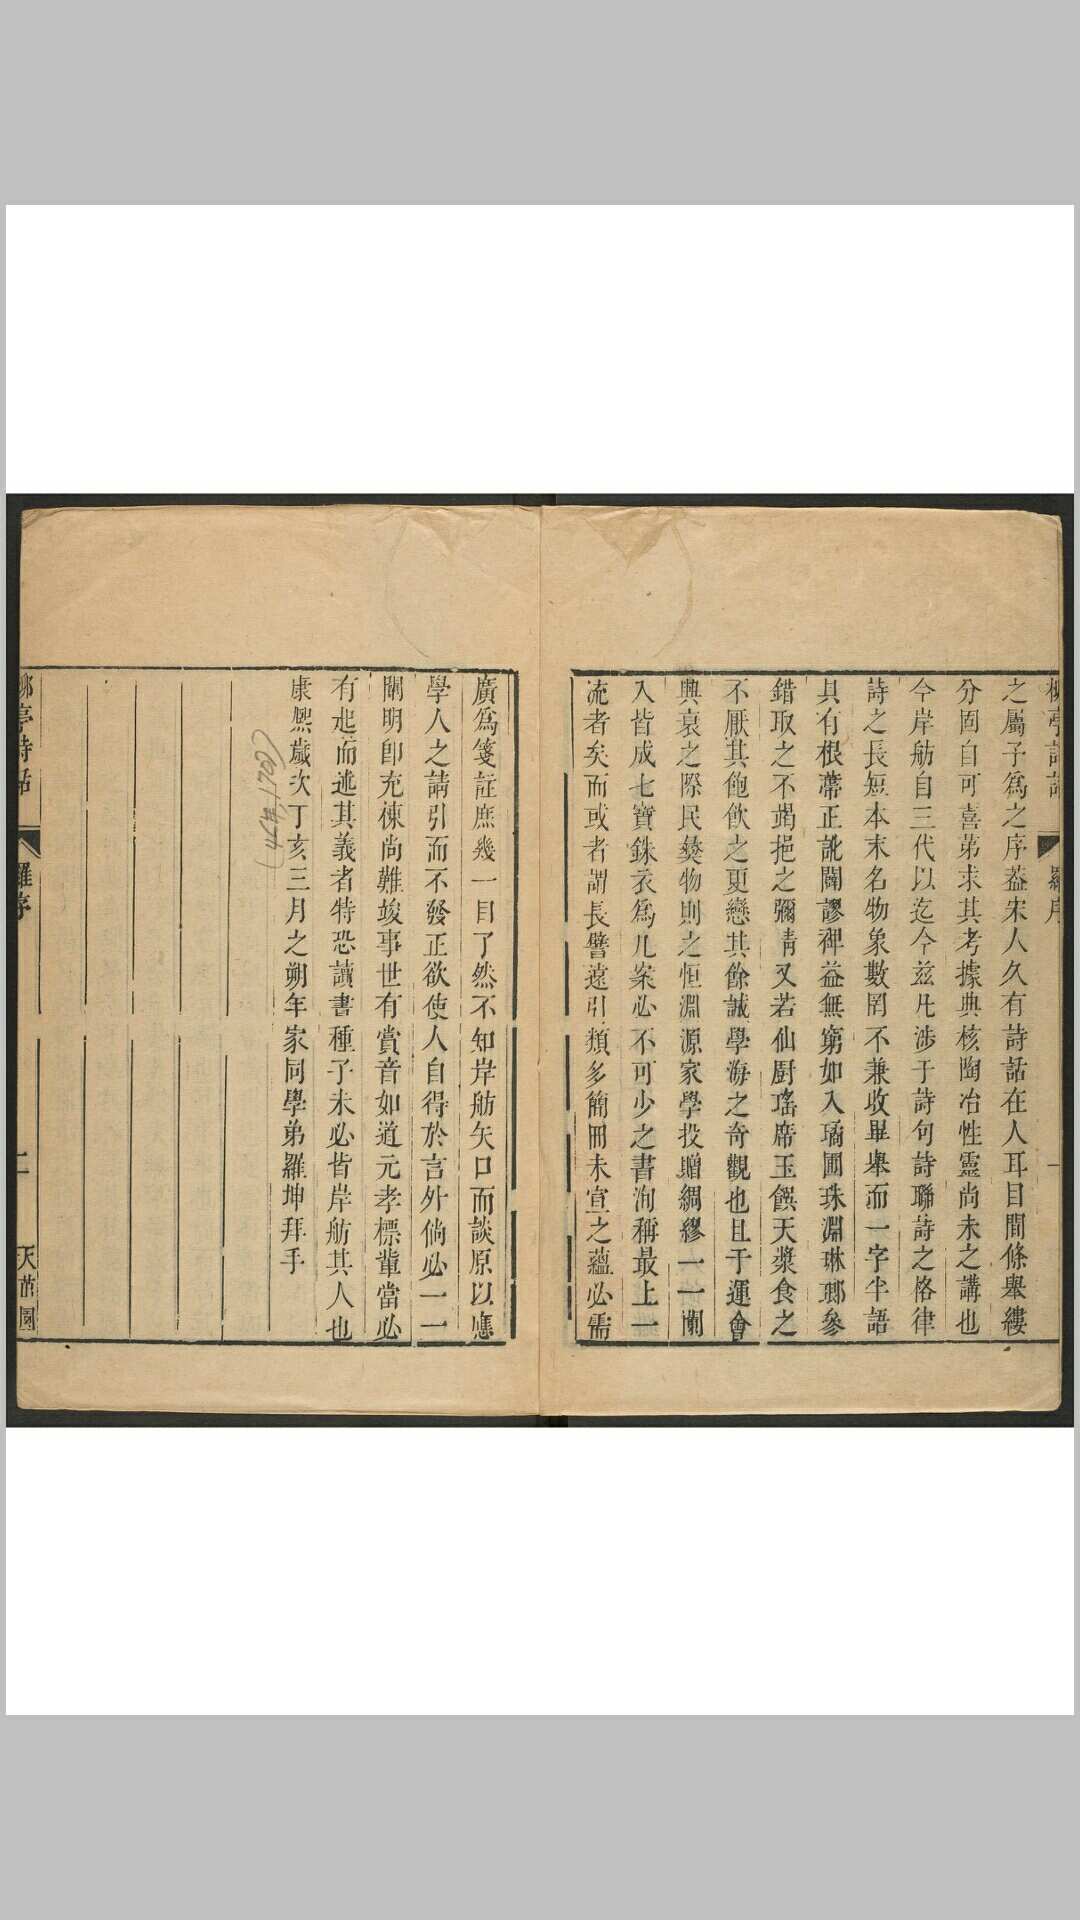 柳亭詩話
羅序
一
之屬予爲之序葢宋人久有詩話在人耳目間條舉縷
分固自可喜第求其考據典核陶冶性靈尚未之講也
今岸舫自三代以迄今茲凡涉于詩句詩聯詩之格律
詩之長短本末名物象數罔不兼收畢舉而一字半語
具有根蒂正訛闢謬裨益無窮如入璚圃珠淵琳瑯參
錯取之不竭挹之彌淸又若仙厨瑤席玉饌天漿食之
不厭其飽飮之更戀其餘誠學海之奇觀也且于運會
興衰之際民彜物則之恒淵源家學投贈綢繆一一闡
入皆成七寶銖衣爲几案必不可少之書洵稱最上一
流者矣而或者謂長譬遠引類多簡冊未宣之蘊必需
廣爲箋註庶幾一目了然不知岸舫矢口而談原以應
學人之請引而不發正欲使人自得於言外倘必一一
闡明卽充棟尚難竣事世有賞音如道元孝標輩當必
有起而述其義者特恐讀書種子未必皆岸舫其人也
康熙歲次丁亥三月之朔年家同學弟羅坤拜手
柳亭詩話
羅序
二
天茁園